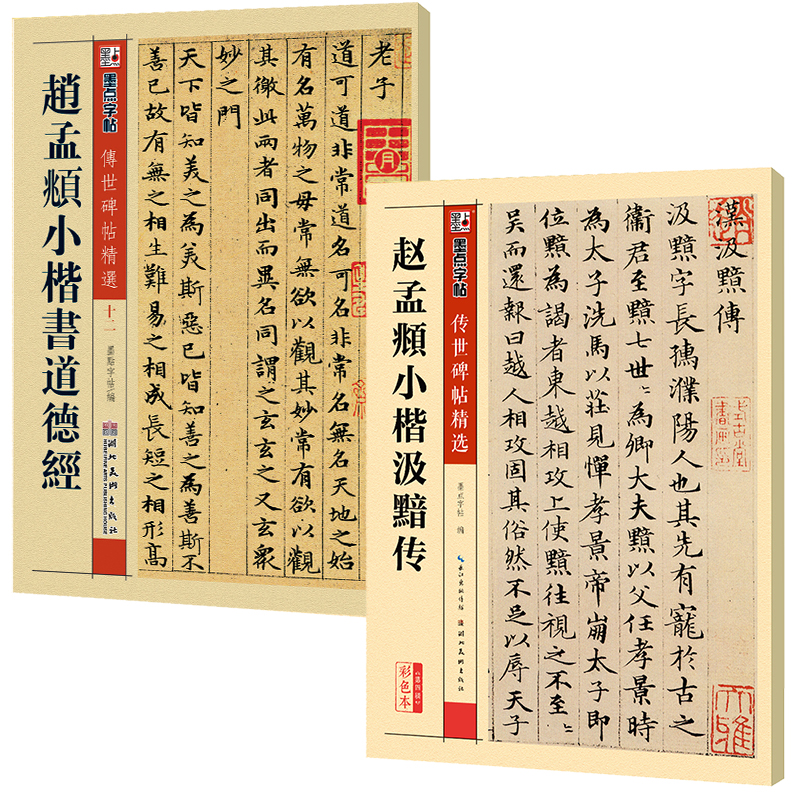 趙孟頫小楷書道德經
墨点
墨点字帖
傳世碑帖精選
十二
墨點字帖 編
湖北美術出版社
HUBEI FINE ARTS PUBLISHING HOUSE
老子
道可道非常道名可名非常名無名天地之始
有名萬物之母常無欲以觀其妙常有欲以觀
其徼此兩者同出而異名同謂之玄玄之又玄衆
妙之門
天下皆知美之為美斯惡已皆知善之為善斯不
善已故有無之相生難易之相成長短之相形高
赵孟頫小楷汲黯传
《第四辑》
彩色本
墨点
墨点字帖
传世碑帖精选
墨点字帖 编
长江出版传媒
湖北美术出版社
漢汲黯傳
汲黯字長孺濮陽人也其先有寵於古之
衞君至黯七世〻為卿大夫黯以父任孝景時
為太子洗馬以莊見憚孝景帝崩太子即
位黯為謁者東越相攻上使黯往視之不至〻
吳而還報曰越人相攻固其俗然不足以辱天子